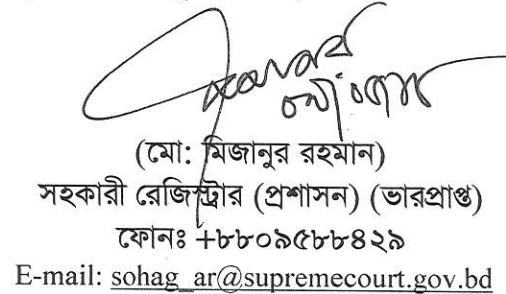 (মো: মিজানুর রহমান)
সহকারী রেজিস্ট্রার (প্রশাসন) (ভারপ্রাপ্ত)
ফোনঃ +৮৮০৯৫৮৮৪২৯
E-mail: sohag_ar@supremecourt.gov.bd